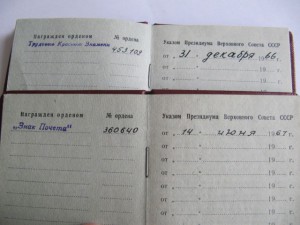 Награжден орденом № ордена
Трудового Красного Знамени 453.109
Указом Президиума Верховного Совета СССР
от „31 " декабря 1966 г.
от „ " 19 г.
от „ " 19 г.
от „ " 19 г.
Награжден орденом № ордена
„Знак Почета" 360640
Указом Президиума Верховного Совета СССР
от „14 " июня 196 г.
от „ " 19 г.
от „ " 19 г.
от „ " 19 г.
от „ " 19 г.
от „ " 19 г.
от „ " 19 г.